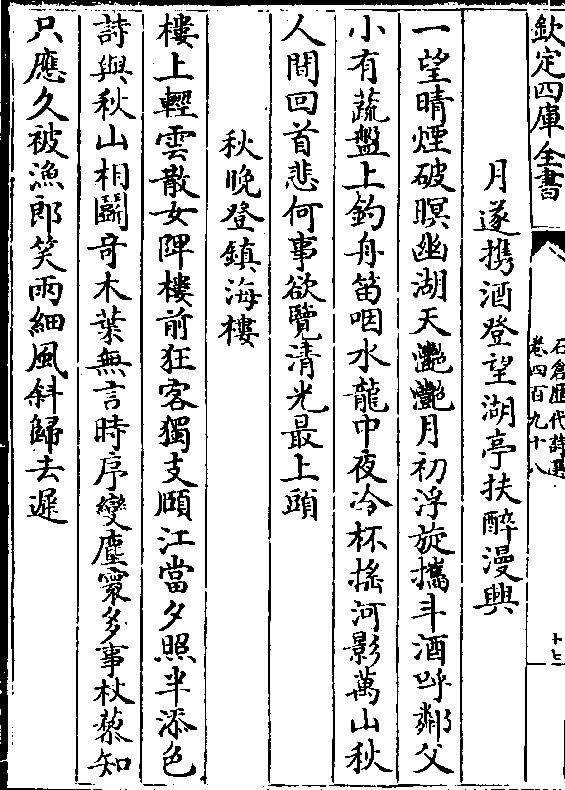 欽定四庫全書
石倉歷代詩選
卷四百九十八
十七
月遂携酒登望湖亭扶醉漫興
一望晴煙破暝幽湖天灔灔月初浮旋攜斗酒呼鄰父
小有蔬盤上釣舟笛咽水龍中夜冷杯搖河影萬山秋
人間回首悲何事欲覽清光最上頭
秋晚登鎮海樓
樓上輕雲散女陴樓前狂客獨支頤江當夕照半添色
詩與秋山相鬭奇木葉無言時序變塵寰多事杖藜知
只應久被漁郎笑雨細風斜歸去遲